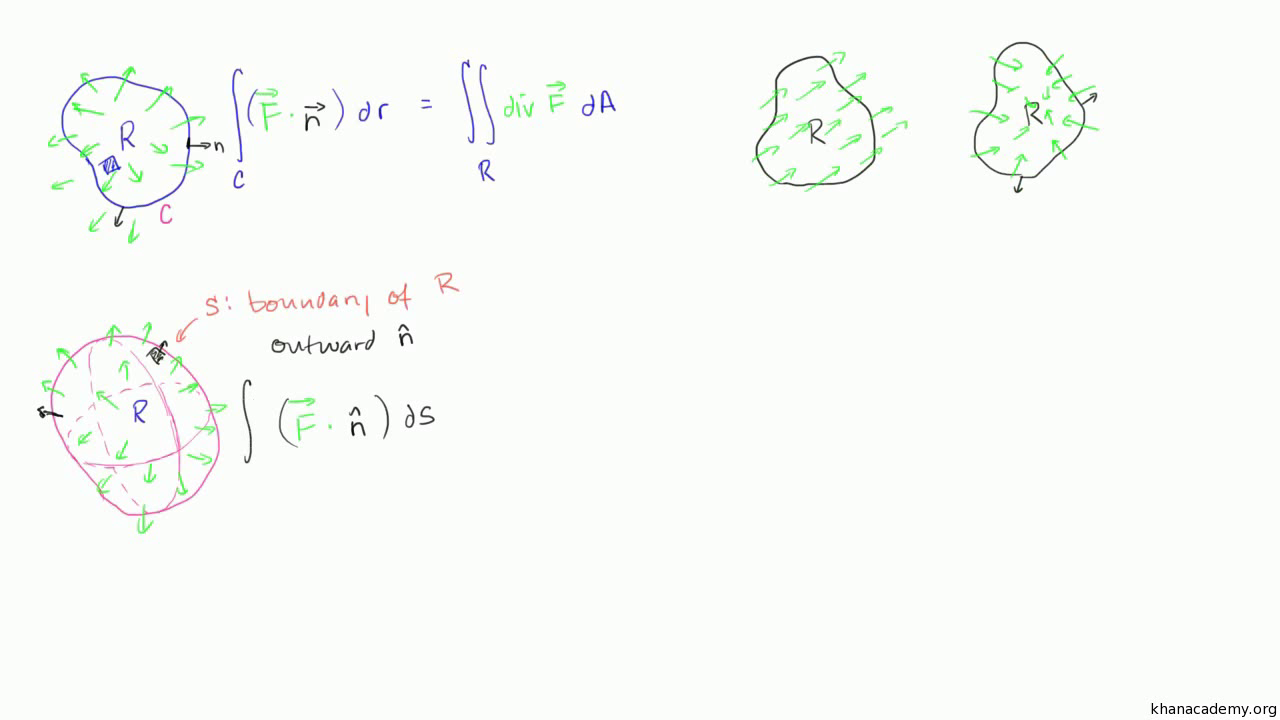 R
n
C
∫_C (F⃗ · n⃗) dr = ∬_R div F⃗ dA
R
R
S: boundary of R
outward n̂
R
∫ (F⃗ · n̂) dS
khanacademy.org